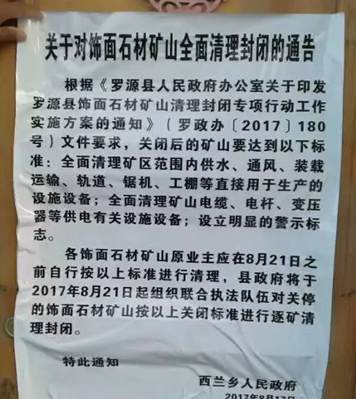 关于对饰面石材矿山全面清理封闭的通告
根据《罗源县人民政府办公室关于印发
罗源县饰面石材矿山清理封闭专项行动工作
实施方案的通知》（罗政办〔2017〕180
号）文件要求，关闭后的矿山要达到以下标
准：全面清理矿区范围内供水、通风、装载
运输、轨道、锯机、工棚等直接用于生产的
设施设备；全面清理矿山电缆、电杆、变压
器等供电有关设施设备；设立明显的警示标
志。
各饰面石材矿山原业主应在8月21日之
前自行按以上标准进行清理，县政府将于
2017年8月21日起组织联合执法队伍对关停
的饰面石材矿山按以上关闭标准进行逐矿清
理封闭。
特此通知
西兰乡人民政府
2017年8月17日